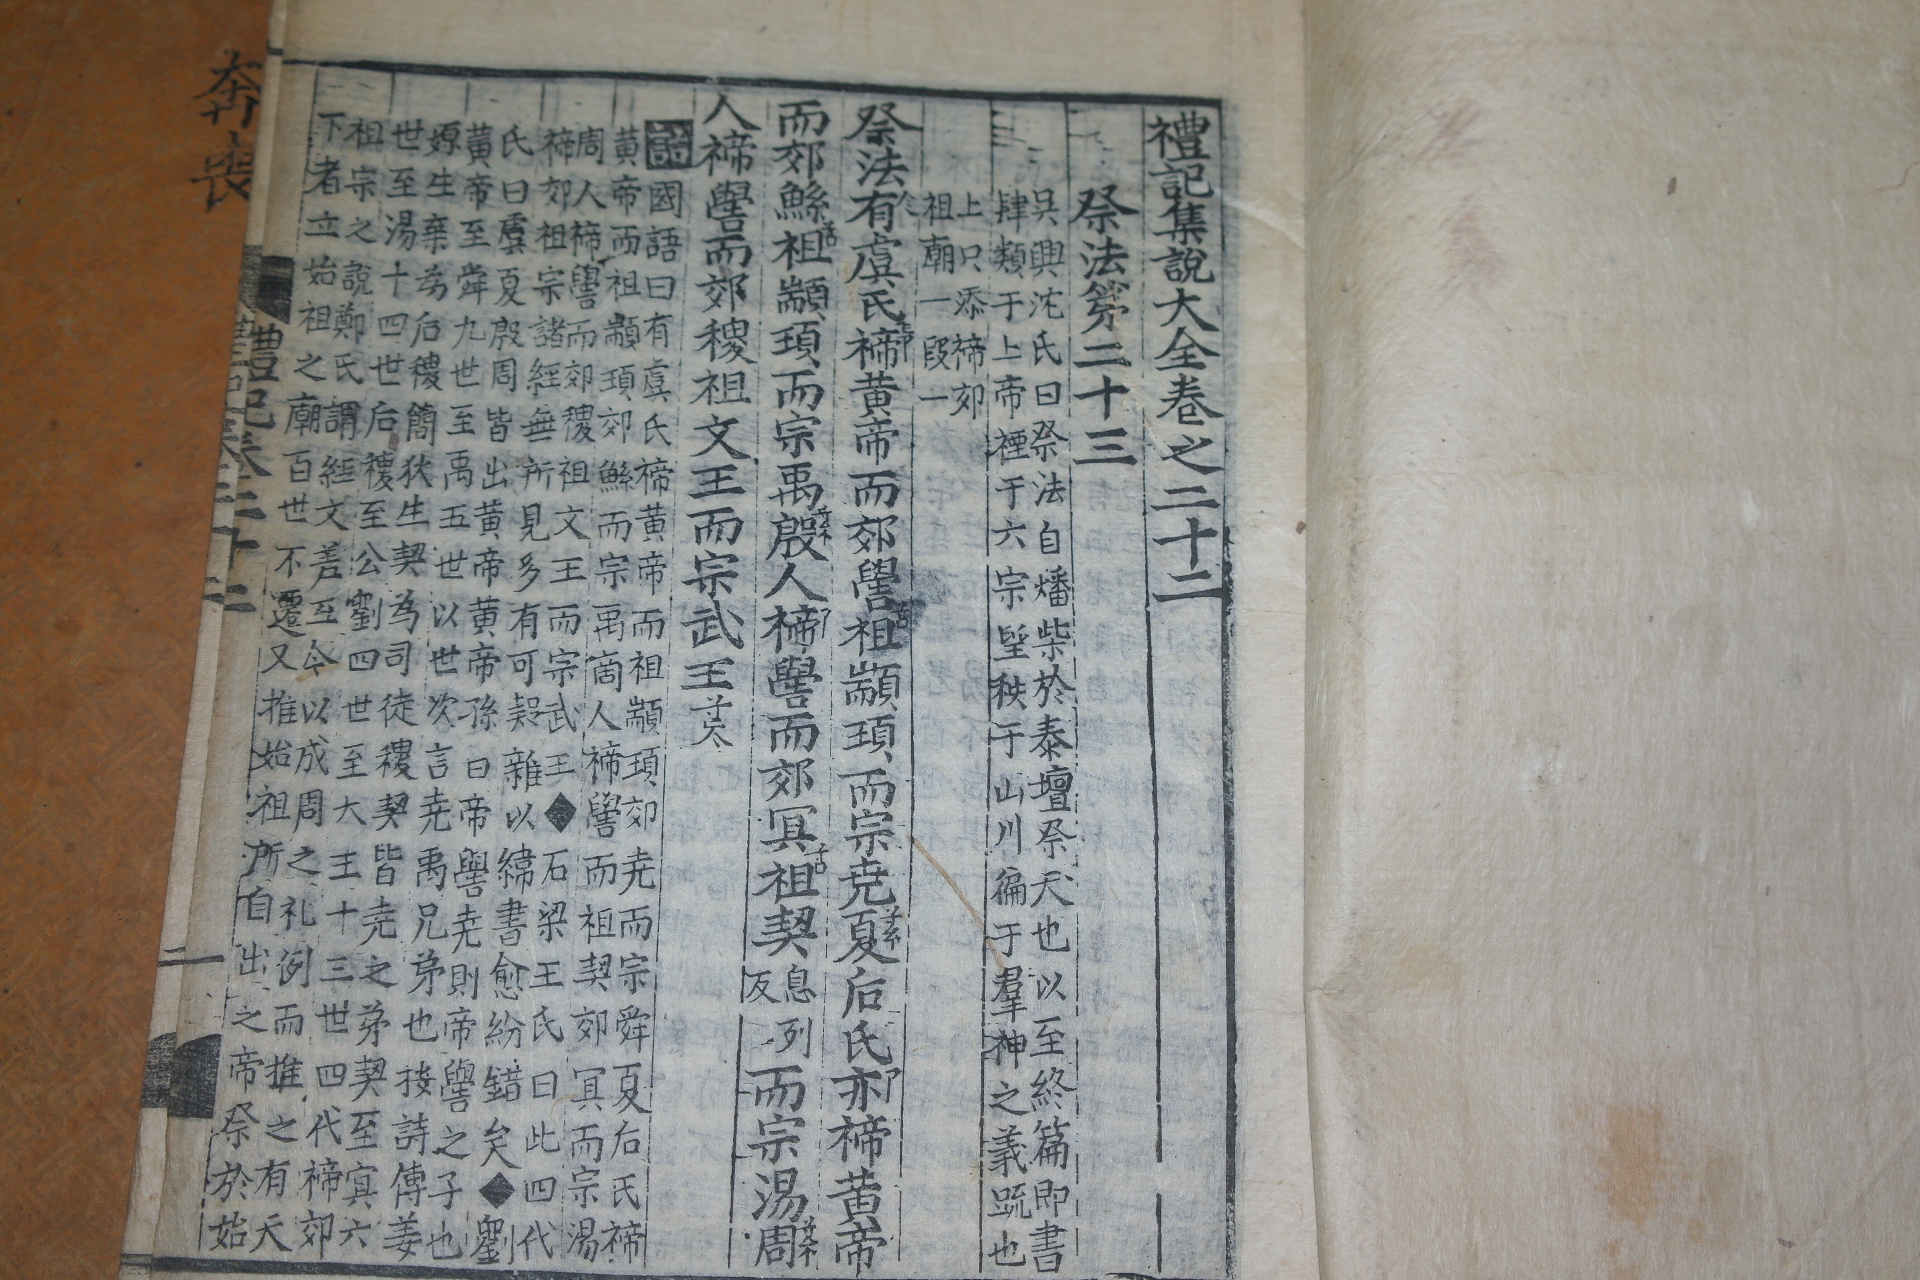 禮記集說大全卷之二十二
祭法第二十三
吳興沈氏曰祭法自燔柴於泰壇祭天也以至終篇即書
肆類于上帝禋于六宗望秩于山川徧于羣神之義䟽也
上只添禘郊
祖廟一段一
祭法有虞氏禘黃帝而郊嚳祖顓頊而宗堯夏后氏亦禘黃帝
而郊鯀祖顓頊而宗禹殷人禘嚳而郊冥祖契息列反而宗湯周
人禘嚳而郊稷祖文王而宗武王
國語曰有虞氏禘黃帝而祖顓頊郊堯而宗舜夏后氏禘
黃帝而祖顓頊郊鯀而宗禹商人禘嚳而祖契郊冥而宗湯
周人禘嚳而郊稷祖文王而宗武王◆石梁王氏曰此四代
禘郊祖宗諸經無所見多有可疑雜以緯書愈紛錯矣◆劉
氏曰虞夏殷周皆出黃帝黃帝孫曰帝嚳堯則帝嚳之子也
黃帝至舜九世至禹五世以世次言堯禹兄弟也按詩傳姜
嫄生棄為后稷簡狄生契為司徒稷契皆堯之弟契至冥六
世至湯十四世后稷至公劉四世至大王十三世四代禘郊
祖宗之說鄭氏謂經文差至今以成周之礼例而推之有天
下者立始祖之廟百世不遷又推始祖所自出之帝祭於始
禮記卷二十二
二
奔喪